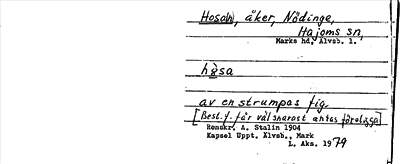 Hosan, åker, Nödinge,
Hajoms sn,
Marks hd, Älvsb. l.
hǫ̀sa
av en strumpas fig.
[Best. f. får väl snarast antas föreligga]
Renskr. A. Stalin 1904
Kapsel Uppt. Älvsb., Mark
L. Aks. 1979